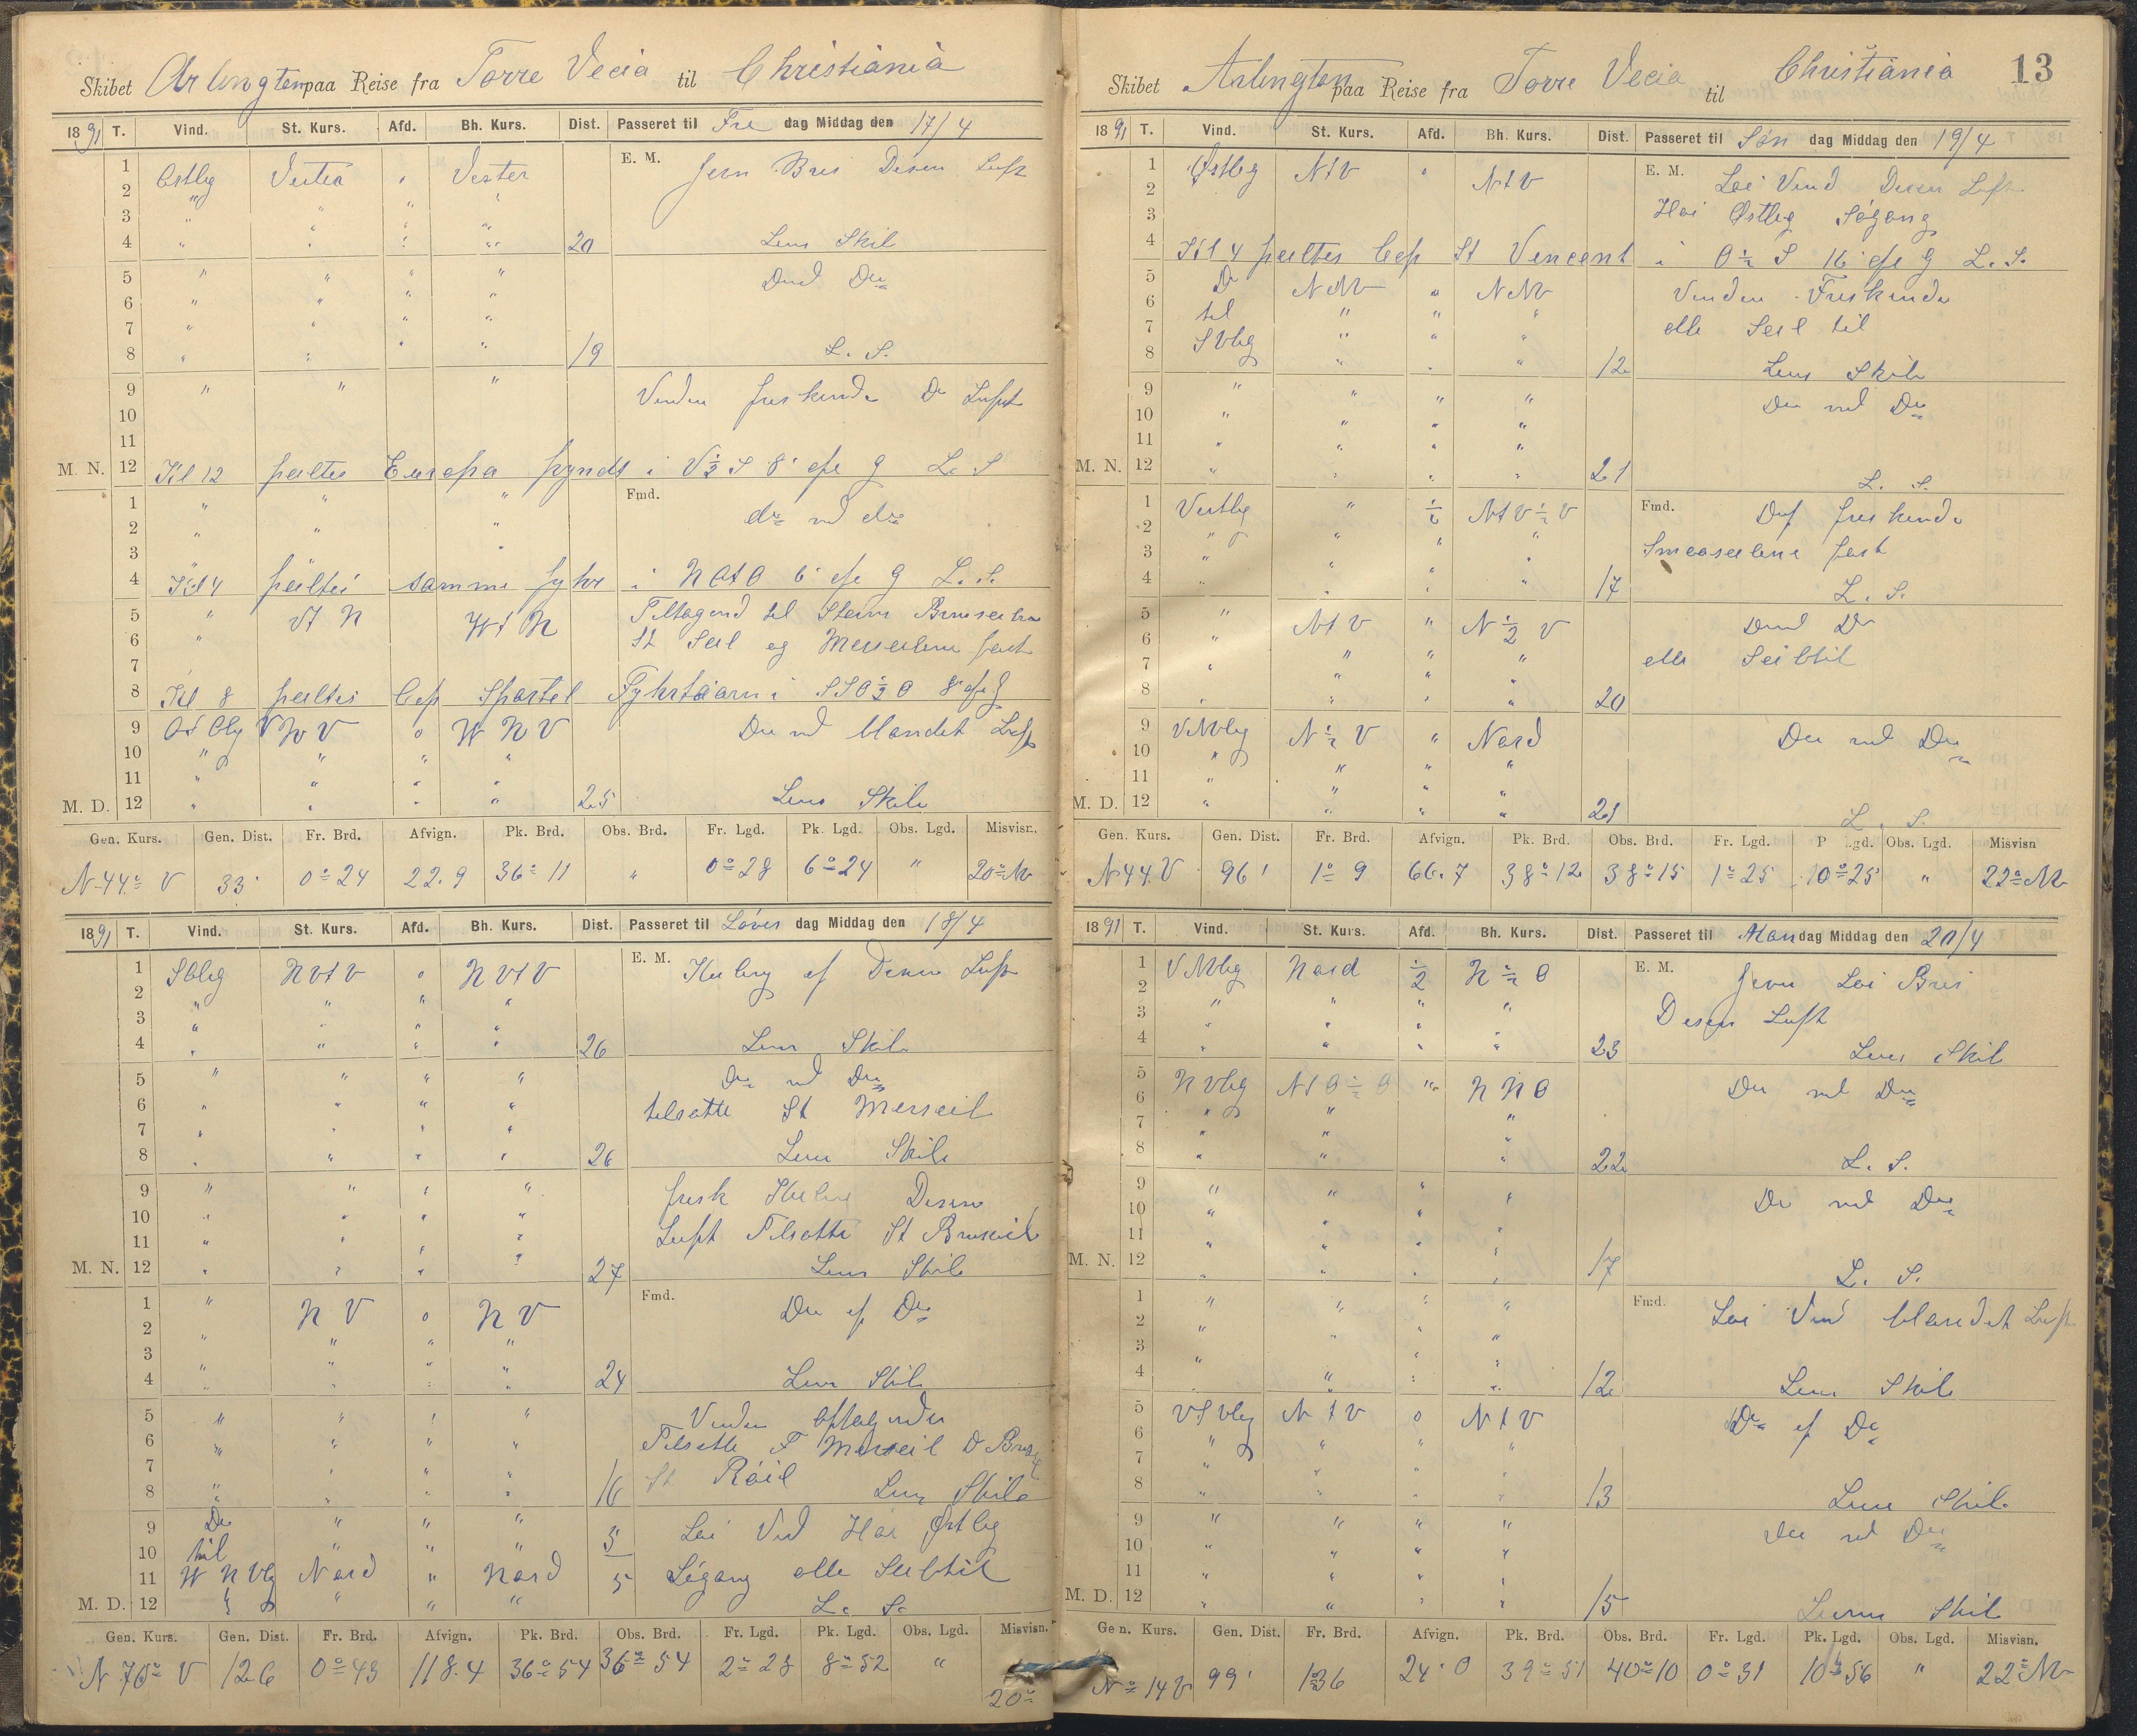 Skibet Arlington paa Reise fra Torre Vecia til Christiania
1891 T. Vind. St. Kurs. Afd. Bh. Kurs. Dist. Passeret til Fre dag Middag den 17/4
1 Østlig Vester " Vester E. M. Jevn Bris Disen Luft
2 " " " "
3 " " " "
4 " " " " 20 Lens Skib
5 " " " "
6 " " " "
7 " " " "
8 " " " " 19 L. S.
9 " " " Vinden friskende Do Luft
10
11
M. N. 12 Kl 12 peiltes Europa pyndt i V½S 8' afs g L. S
1 " " " Fmd. do med do
2 " " "
3
4 Kl 4 peiltes samme fyhr i NOtO 6' afs g L. S.
5 " Vt N Wt N Tiltagend til Storm
6 " St Seil og Merseilene fast
7
8 Kl 8 peiltes Cap Spartel Fyhrtaarn i SSO½O 8' afs g
9 WNV 0 WNV Do med blandet Luft
10 " " " "
11 " " " "
M. D. 12 " " " " 25 Lens Skib
Gen. Kurs. Gen. Dist. Fr. Brd. Afvign. Pk. Brd. Obs. Brd. Fr. Lgd. Pk. Lgd. Obs. Lgd. Misvisn.
N 44° V 33' 0° 24 22.9 36° 11 " 0° 28 6° 24 " 20° W
1891 T. Vind. St. Kurs. Afd. Bh. Kurs. Dist. Passeret til Løver dag Middag den 18/4
1 SOlig NVtV 0 NVtV E. M. Kuling af Disen Luft
2 " " " "
3 " " " "
4 " " " " 26 Lens Skib
5 " " " " Do med Do
6 " " " " tilsatte St Merseil
7 " " " "
8 " " " " 26 Lens Skib
9 " " " " frisk Kuling Disen
10 " " " " Luft Tilsatte St Bramseil
11 " " " "
M. N. 12 " " " " 27 Lens Skib
1 " NV 0 NV Fmd. Do af Do
2 " " " "
3 " " " "
4 " " " " 24 Lens Skib
5 " " " " Vinden aftagende
6 " " " " Tilsatte F Merseil
7 " " " " St Røil
8 " " " " 16 Lens Skib
9 Do " " " 5 Løi Vind Høi Østlig
10 til " " "
11 WNVlig Nord " Nord 5 Søgang alle Seil til
M. D. 12 " " " L. S.
Gen. Kurs. Gen. Dist. Fr. Brd. Afvign. Pk. Brd. Obs. Brd. Fr. Lgd. Pk. Lgd. Obs. Lgd. Misvisn.
N 70° V 126 0° 43 118.4 36° 54 36° 54 2° 28 8° 52 " 20°
13
Skibet Arlington paa Reise fra Torre Vecia til Christiania
1891 T. Vind. St. Kurs. Afd. Bh. Kurs. Dist. Passeret til Søn dag Middag den 19/4
1 Østlig NtV " NtV E. M. Løi Vind Disen Luft
2 Høi Østlig Søgang
3
4 Kl 4 peiltes Cap St Vencent i O½S 16' afs g L. S.
5 Do NNV " NNV Vinden Friskende
6 til " " " alle Seil til
7 SVlig " " "
8 " " " 12 Lens Skib
9 " " " " Do med Do
10 " " " "
11 " " " "
M. N. 12 " " " " 21 L. S.
1 Vestlig " ½ NtV½V Fmd. Do friskende
2 " " " " Smaaseilene fast
3 " " " "
4 " " " " 17 L. S.
5 " NtV " N½V
6 " " " " alle Seil til
7 " " " "
8 " " " " 20
9 VNVlig N½V " Nord Do med Do
10 " " " "
11 " " " "
M. D. 12 " " " " 21 L. S.
Gen. Kurs. Gen. Dist. Fr. Brd. Afvign. Pk. Brd. Obs. Brd. Fr. Lgd. Pk. Lgd. Obs. Lgd. Misvisn
N 44. V 96' 1° 9 66.7 38° 12 38° 15 1° 25 10° 25 " 22° W
1891 T. Vind. St. Kurs. Afd. Bh. Kurs. Dist. Passeret til Man dag Middag den 20/4
1 VNVlig Nord ½ N½O E. M. Jevn Løi Bris
2 " " " " Disen Luft
3 " " " "
4 " " " " 23 Lens Skib
5 NVlig NtO½O " NNO Do med Do
6 " " "
7 " " "
8 " " " 22 L. S.
9 " " " " Do med Do
10 " " " "
11 " " " "
M. N. 12 " " " " 17 L. S.
1 " " " " Fmd. Løi Vind blandet Luft
2 " " "
3 " " "
4 " " " 12 Lens Skib
5 VSVlig NtV 0 NtV Do af Do
6 " " " "
7 " " "
8 " " " " 13 Lens Skib
9 " " " " Do med Do
10 " " " "
11 " " " "
M. D. 12 " " " " 15 Lens Skib
Gen. Kurs. Gen. Dist. Fr. Brd. Afvign. Pk. Brd. Obs. Brd. Fr. Lgd. Pk. Lgd. Obs. Lgd. Misvisn.
N° 14 V 99' 1° 36 24.0 39° 51 40° 10 0° 31 10° 56 " 22° W